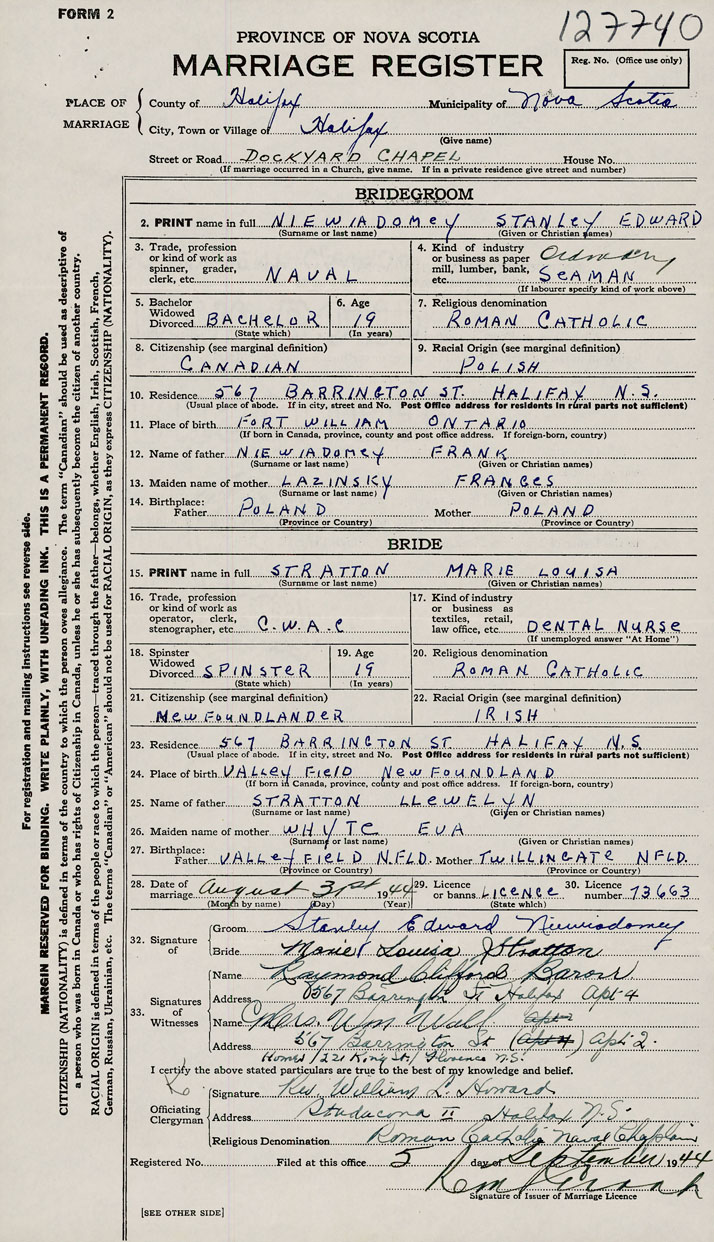 FORM 2
127740
PROVINCE OF NOVA SCOTIA
MARRIAGE REGISTER
Reg. No. (Office use only)
PLACE OF MARRIAGE
County of Halifax Municipality of Nova Scotia
City, Town or Village of Halifax
(Give name)
Street or Road DOCKYARD CHAPEL House No.
(If marriage occurred in a Church, give name. If in a private residence give street and number)
BRIDEGROOM
2. PRINT name in full NIEWIADOMEY STANLEY EDWARD
(Surname or last name) (Given or Christian names)
3. Trade, profession or kind of work as spinner, grader, clerk, etc. NAVAL
4. Kind of industry or business as paper mill, lumber, bank, etc. Ordinary SEAMAN
(If labourer specify kind of work above)
5. Bachelor Widowed Divorced BACHELOR
(State which)
6. Age 19
(In years)
7. Religious denomination
ROMAN CATHOLIC
8. Citizenship (see marginal definition)
CANADIAN
9. Racial Origin (see marginal definition)
POLISH
10. Residence 567 BARRINGTON ST. HALIFAX N.S.
(Usual place of abode. If in city, street and No. Post Office address for residents in rural parts not sufficient)
11. Place of birth FORT WILLIAM ONTARIO
(If born in Canada, province, county and post office address. If foreign-born, country)
12. Name of father NIEWIADOMEY FRANK
(Surname or last name) (Given or Christian names)
13. Maiden name of mother LAZINSKY FRANCES
(Surname or last name) (Given or Christian names)
14. Birthplace:
Father POLAND Mother POLAND
(Province or Country) (Province or Country)
BRIDE
15. PRINT name in full STRATTON MARIE LOUISA
(Surname or last name) (Given or Christian names)
16. Trade, profession or kind of work as operator, clerk, stenographer, etc. C.W.A.C
17. Kind of industry or business as textiles, retail, law office, etc. DENTAL NURSE
(If unemployed answer "At Home")
18. Spinster Widowed Divorced SPINSTER
(State which)
19. Age 19
(In years)
20. Religious denomination
ROMAN CATHOLIC
21. Citizenship (see marginal definition)
NEWFOUNDLANDER
22. Racial Origin (see marginal definition)
IRISH
23. Residence 567 BARRINGTON ST HALIFAX N.S.
(Usual place of abode. If in city, street and No. Post Office address for residents in rural parts not sufficient)
24. Place of birth VALLEY FIELD NEWFOUNDLAND
(If born in Canada, province, county and post office address. If foreign-born, country)
25. Name of father STRATTON LLEWELYN
(Surname or last name) (Given or Christian names)
26. Maiden name of mother WHYTE EVA
(Surname or last name) (Given or Christian names)
27. Birthplace:
Father VALLEY FIELD NFLD. Mother TWILLINGATE NFLD.
(Province or Country) (Province or Country)
28. Date of marriage August 31st 1944
(Month by name) (Day) (Year)
29. Licence or banns LICENCE
(State which)
30. Licence number 73663
32. Signature of
Groom Stanley Edward Niewiadomey
Bride Marie Louisa Stratton
33. Signatures of Witnesses
Name Raymond Clifford
Address 567 Barrington St Halifax Apt 4
Name Mrs. Wm Wall
Address 567 Barrington St (Apt 4) Apt. 2.
Home / 221 King St / Florence N.S.
I certify the above stated particulars are true to the best of my knowledge and belief.
Officiating Clergyman
Signature Rev. William L. Howard
Address Stadacona II Halifax N.S.
Religious Denomination Roman Catholic Naval Chaplain
Registered No. Filed at this office 5 day of September 1944
Signature of Issuer of Marriage Licence
[SEE OTHER SIDE]
For registration and mailing instructions see reverse side.
MARGIN RESERVED FOR BINDING. WRITE PLAINLY, WITH UNFADING INK. THIS IS A PERMANENT RECORD.
CITIZENSHIP (NATIONALITY) is defined in terms of the country to which the person owes allegiance. The term "Canadian" should be used as descriptive of
a person who was born in Canada or who has rights of Citizenship in Canada, unless he or she has subsequently become the citizen of another country.
RACIAL ORIGIN is defined in terms of the people or race to which the person—traced through the father—belongs, whether English, Irish, Scottish, French,
German, Russian, Ukrainian, etc. The terms "Canadian" or "American" should not be used for RACIAL ORIGIN, as they express CITIZENSHIP (NATIONALITY).